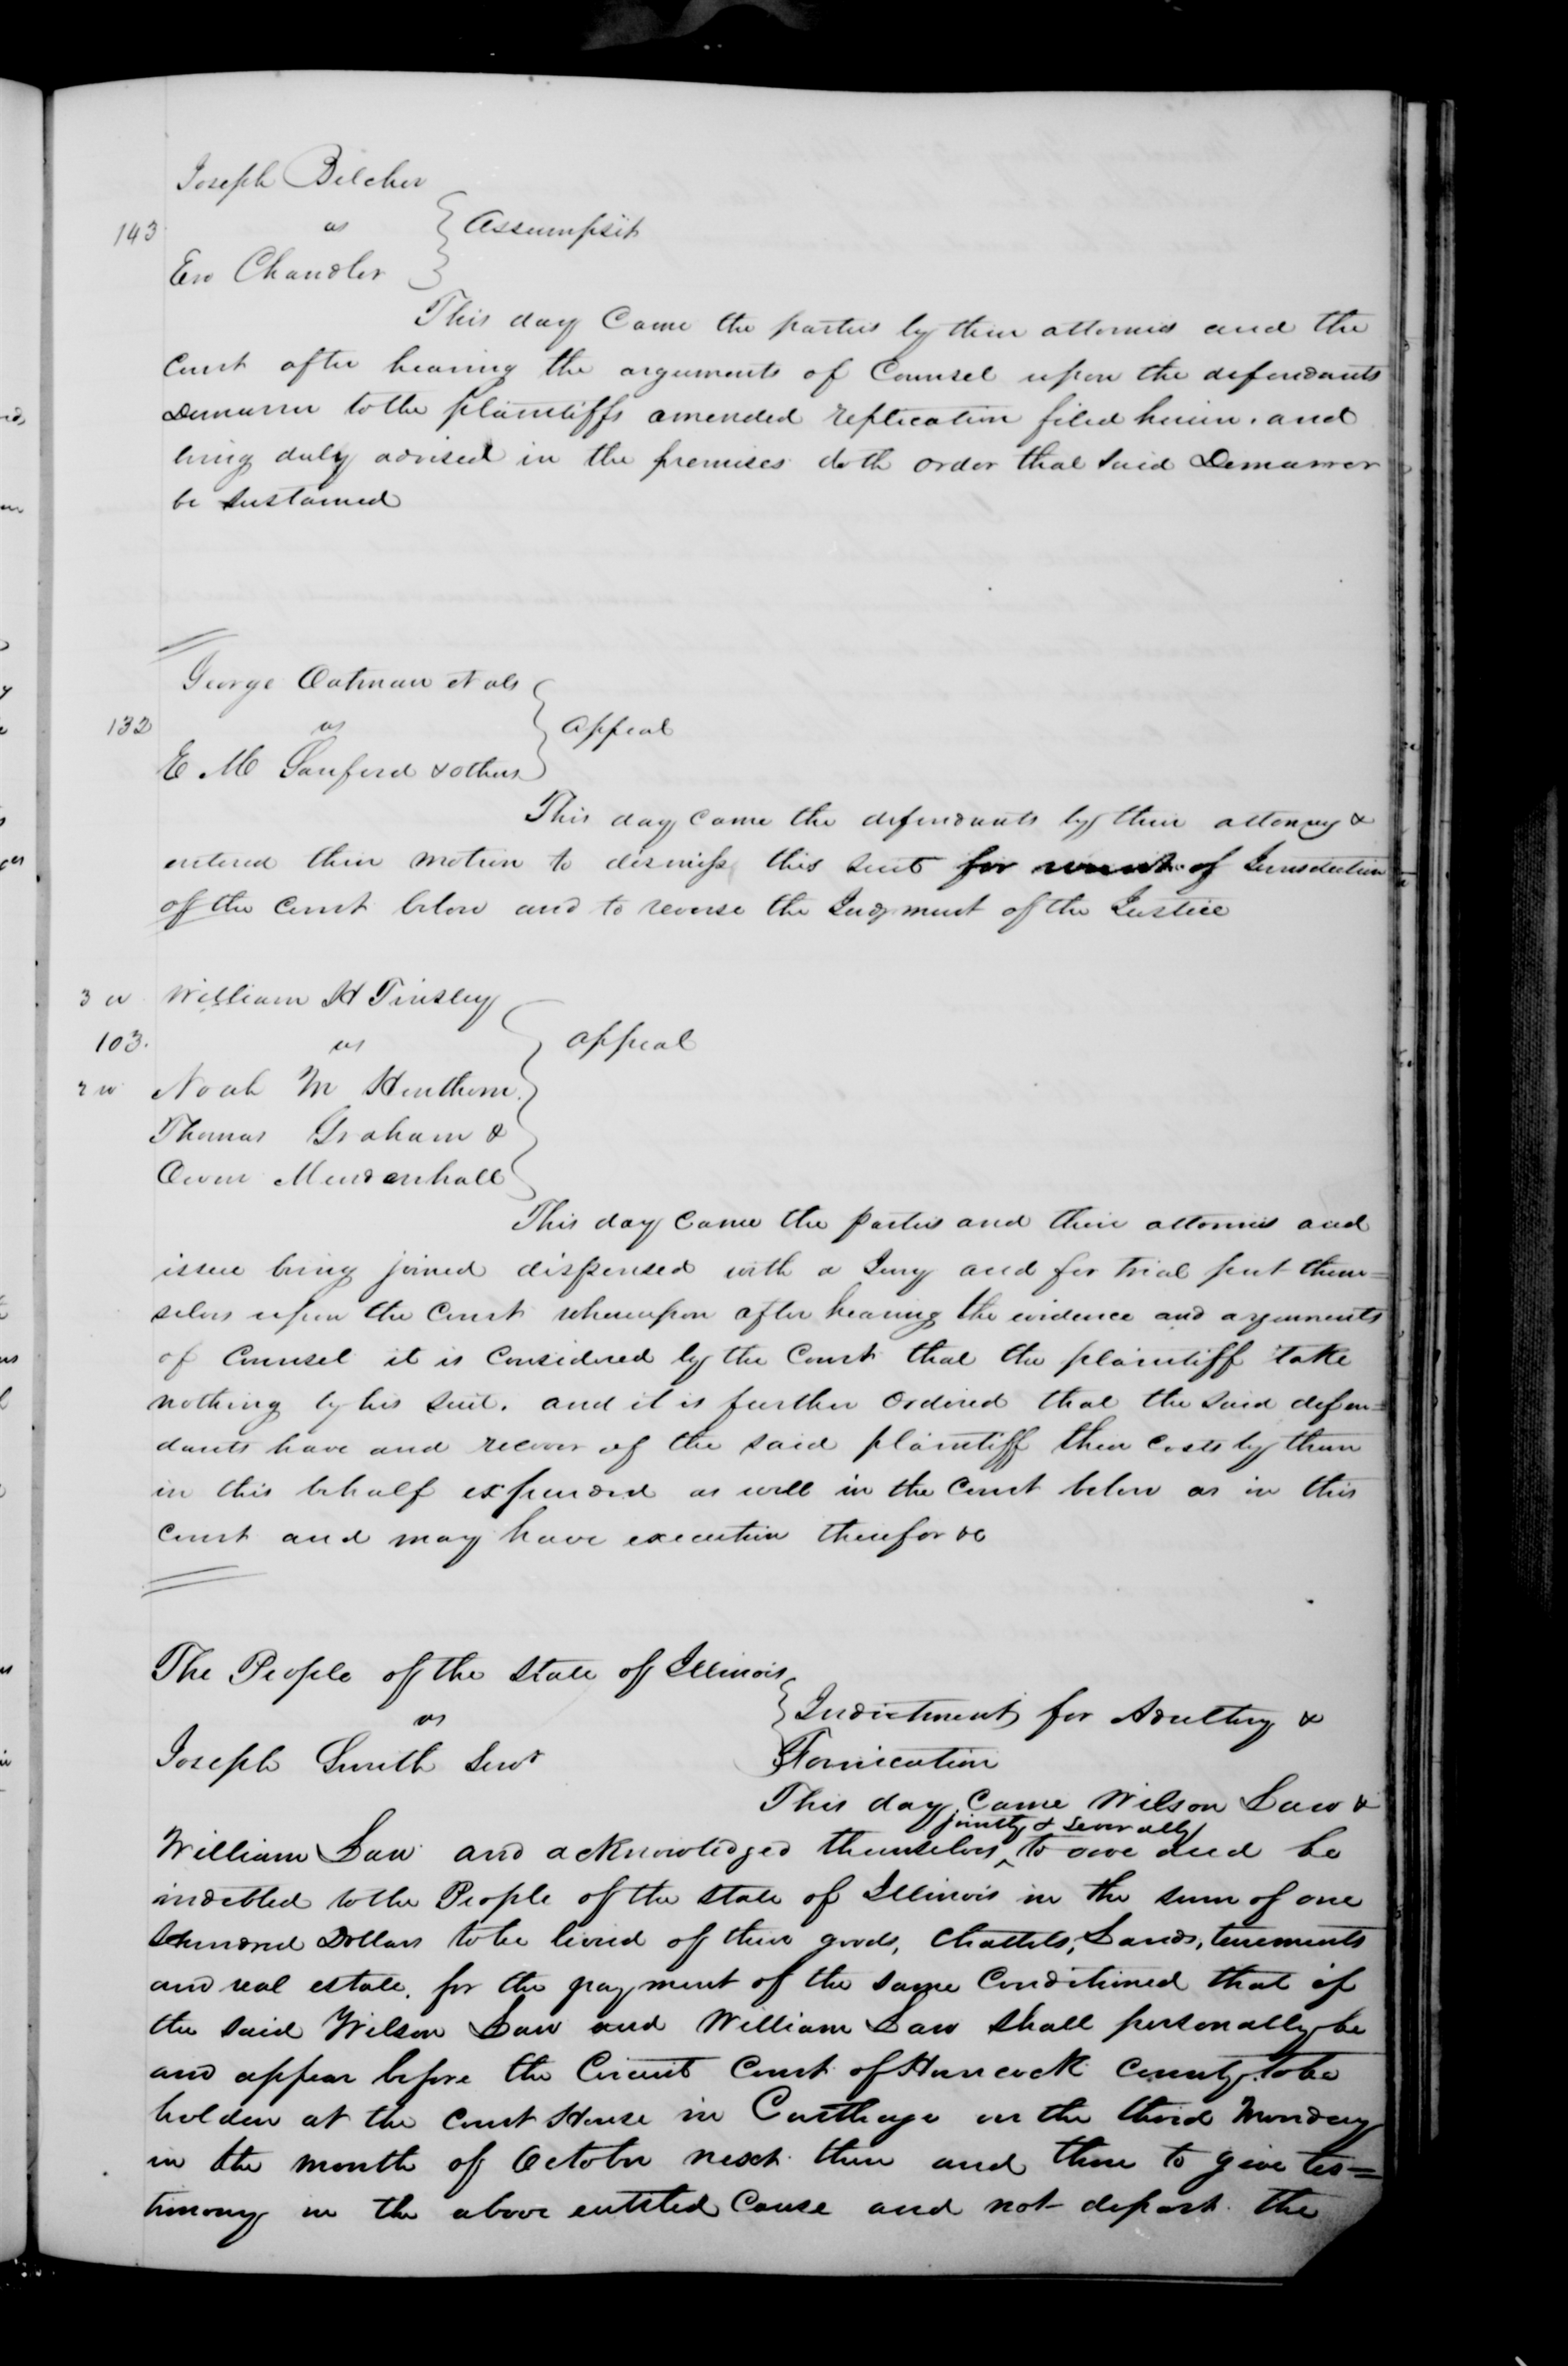 Joseph Belcher
143 vs } Assumpsit
Chandler
This day Came the parties by their attornies and the
Court after hearing the arguments of Counsel upon the defendants
Demurrer to the plaintiffs amended replication filed herein. and
being duly advised in the premises doth order that said Demurrer
be sustained
George Oatman et als
132 vs } Appeal
E M Sanford & others
This day came the defendants by their attorney &
entered their motion to dismiss this suit for want of Jurisdiction
of the Court below and to reverse the Judgment of the Justice
3 w William H Tinsley
103. vs } appeal
2 w Noah M Henthorn
Thomas Graham &
Owen Mendenhall
This day came the parties and their attornies and
issue being joined dispensed with a Jury and for trial put them=
selves upon the Court whereupon after hearing the evidence and arguments
of Counsel it is Considered by the Court that the plaintiff take
nothing by his suit. and it is further Ordered that the said defen=
dants have and recover of the said plaintiff their costs by them
in this behalf expended as well in the Court below as in this
Court and may have execution therefor &c
The People of the State of Illinois
vs } Indictment for Adultery &
Joseph Smith Senr Fornication
This day Came Wilson Law &
jointly & severally
William Law and acknowledged themselves ^ to owe and be
indebted to the People of the State of Illinois in the sum of one
hundred Dollars to be levied of their goods, chattels, Lands, tenements
and real estate. for the payment of the same Conditioned that if
the said Wilson Law and William Law shall personally be
and appear before the Circuit Court of Hancock County to be
holden at the Court House in Carthage on the third Monday
in the month of October next then and there to give tes=
timony in the above entitled Cause and not depart the